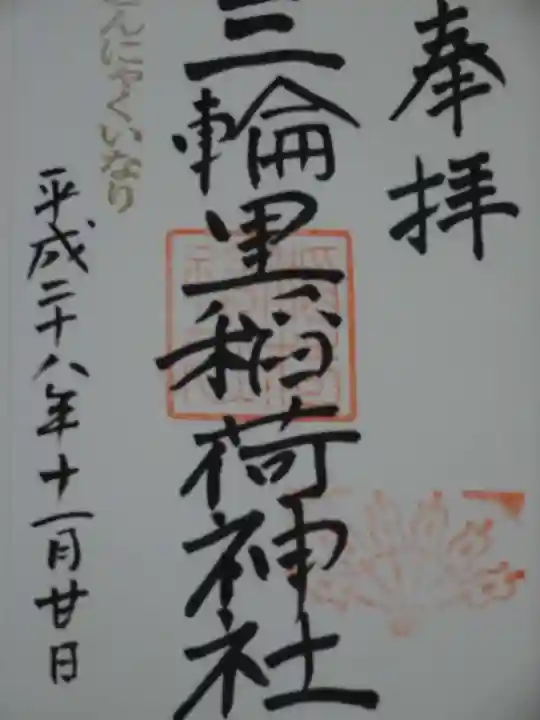 奉拝
三輪里稲荷神社
んにゃくいなり
平成二十八年十一月廿日